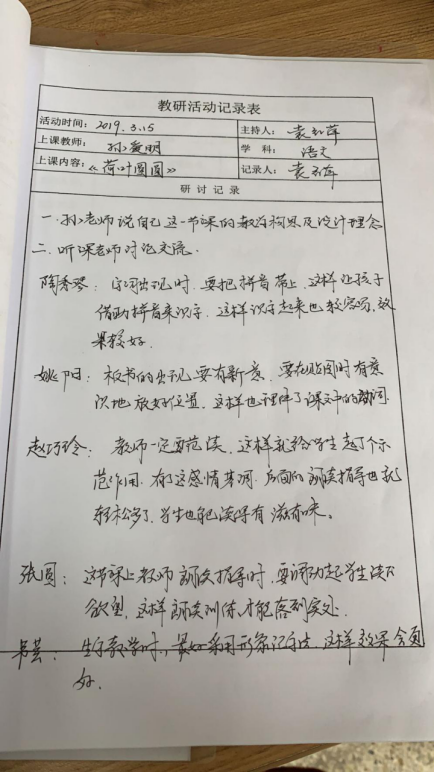 教研活动记录表
活动时间：2019.3.15 主持人：袁玉萍
上课教师：孙爱明 学 科：语文
上课内容：《荷叶圆圆》 记录人：袁玉萍
研 讨 记 录
一.孙老师说自己这一节课的教学构思及设计理念
二.听课老师讨论交流.
陶秀琴：字词出现时.要把拼音带上.这样让孩子
借助拼音来识字.这样识字起来也较容易,效
果较好.
姚阳：板书的出现要有新意.要在贴图时有意
识地放好位置.这样也理解了课文中的动词.
赵巧玲：教师一定要范读.这样就给学生起了个示
范作用.有了这感情基调.后面的朗读指导也就
轻松多了.学生也能读得有滋有味。
张圆：这节课上教师朗读指导时.要调动起学生读的
欲望,这样朗读训练才能落到实处.
芸：生字教学时,最好采用形象记字法.这样效果会更
好.